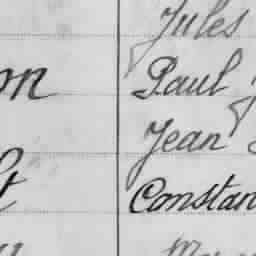 Jules
on Paul
Jean
t Constan